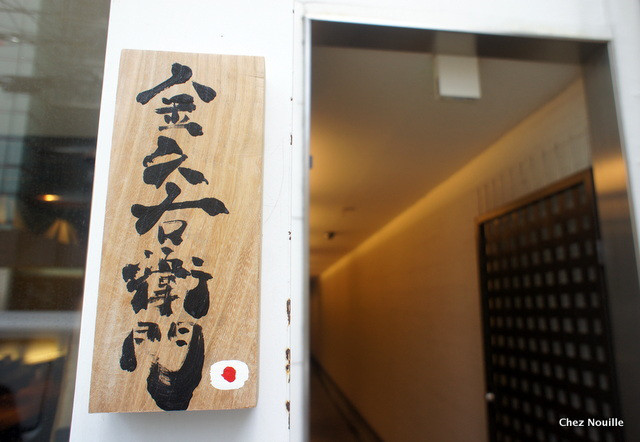 金六右衛門
Chez Nouille